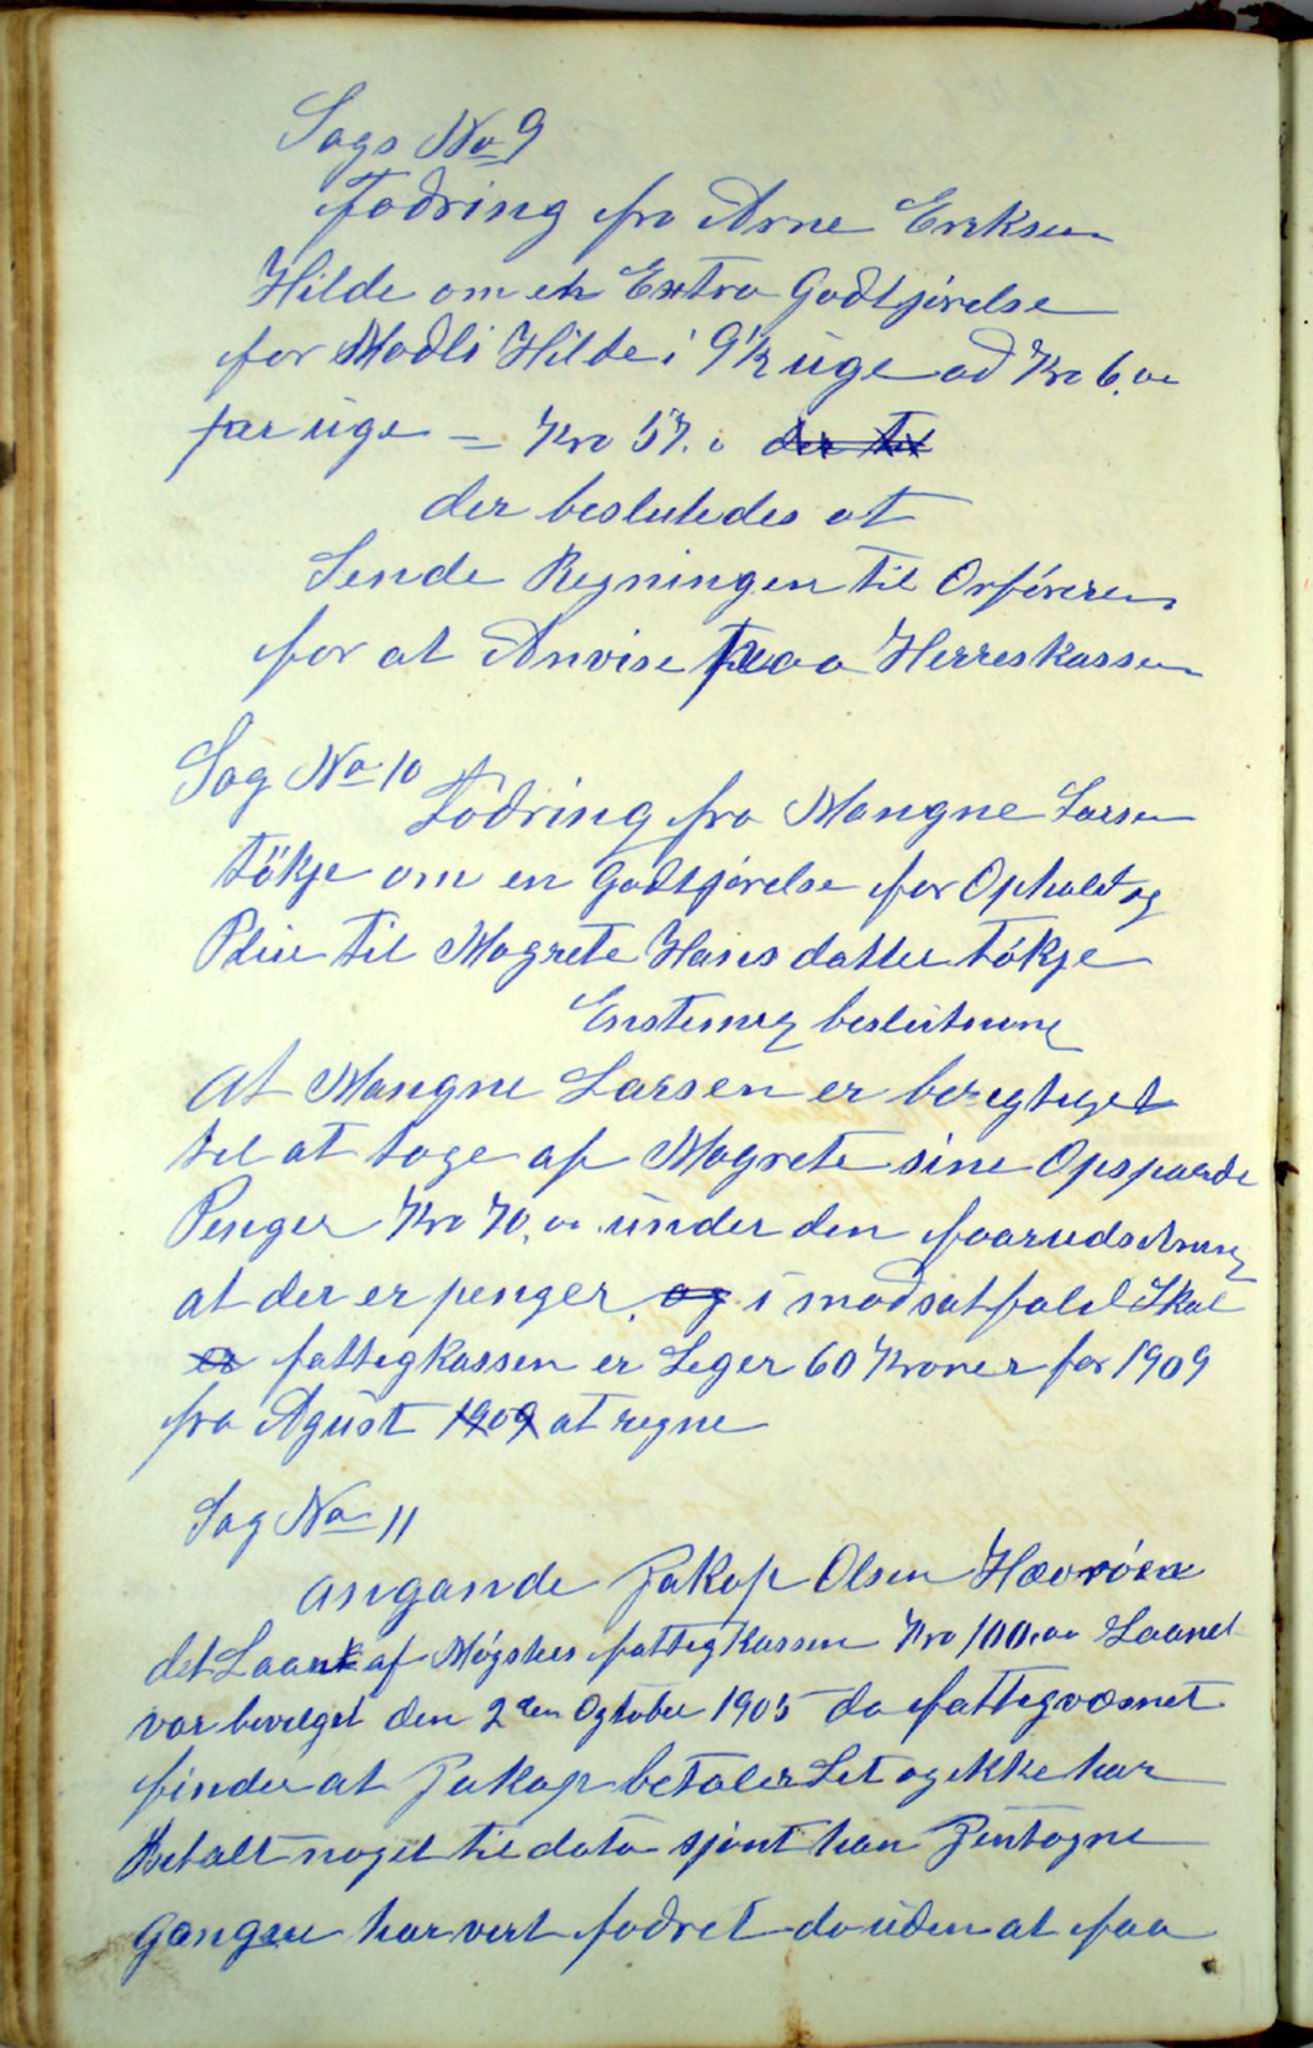 Sags No 9
Fodring fra Arne Eriksen
Hilde om en Extra Godtjørelse
for Madli Hilde i 9½ uge ad Kro 6.00
per uge = Kro 57.0 der til
der besluttedes at
Sende Regningen til Orføreren
for at Anvise paa Herreskassen
Sag No 10
Fodring fra Mangne Larsen
tøkje om en Godtgjørelse for Ophold og
Pleie til Magrete Hansdatter tøkje
Enstemig beslutning
At Mangne Larsen er beregtiget
til at tage af Magrete sine Opsparde
Penger Kro 70.00 under den foarudsetning
at der er penger, og i modsatfald Skal
er fattigkassen er Leger 60 Kroner for 1909
fra Agust 1909 at regne
Sag No 11
angande Jakop Olsen Hævrøen
det Laant af Møgsters fattigkassen Kro 100.00 Laanet
var bevelget den 2den Ogtober 1905 da fattigvæsnet
finder at Jakop betaler Let og ikke har
Betalt noget til dato sjønt han Jentagne
Gangene har vert fodret da uden at faa